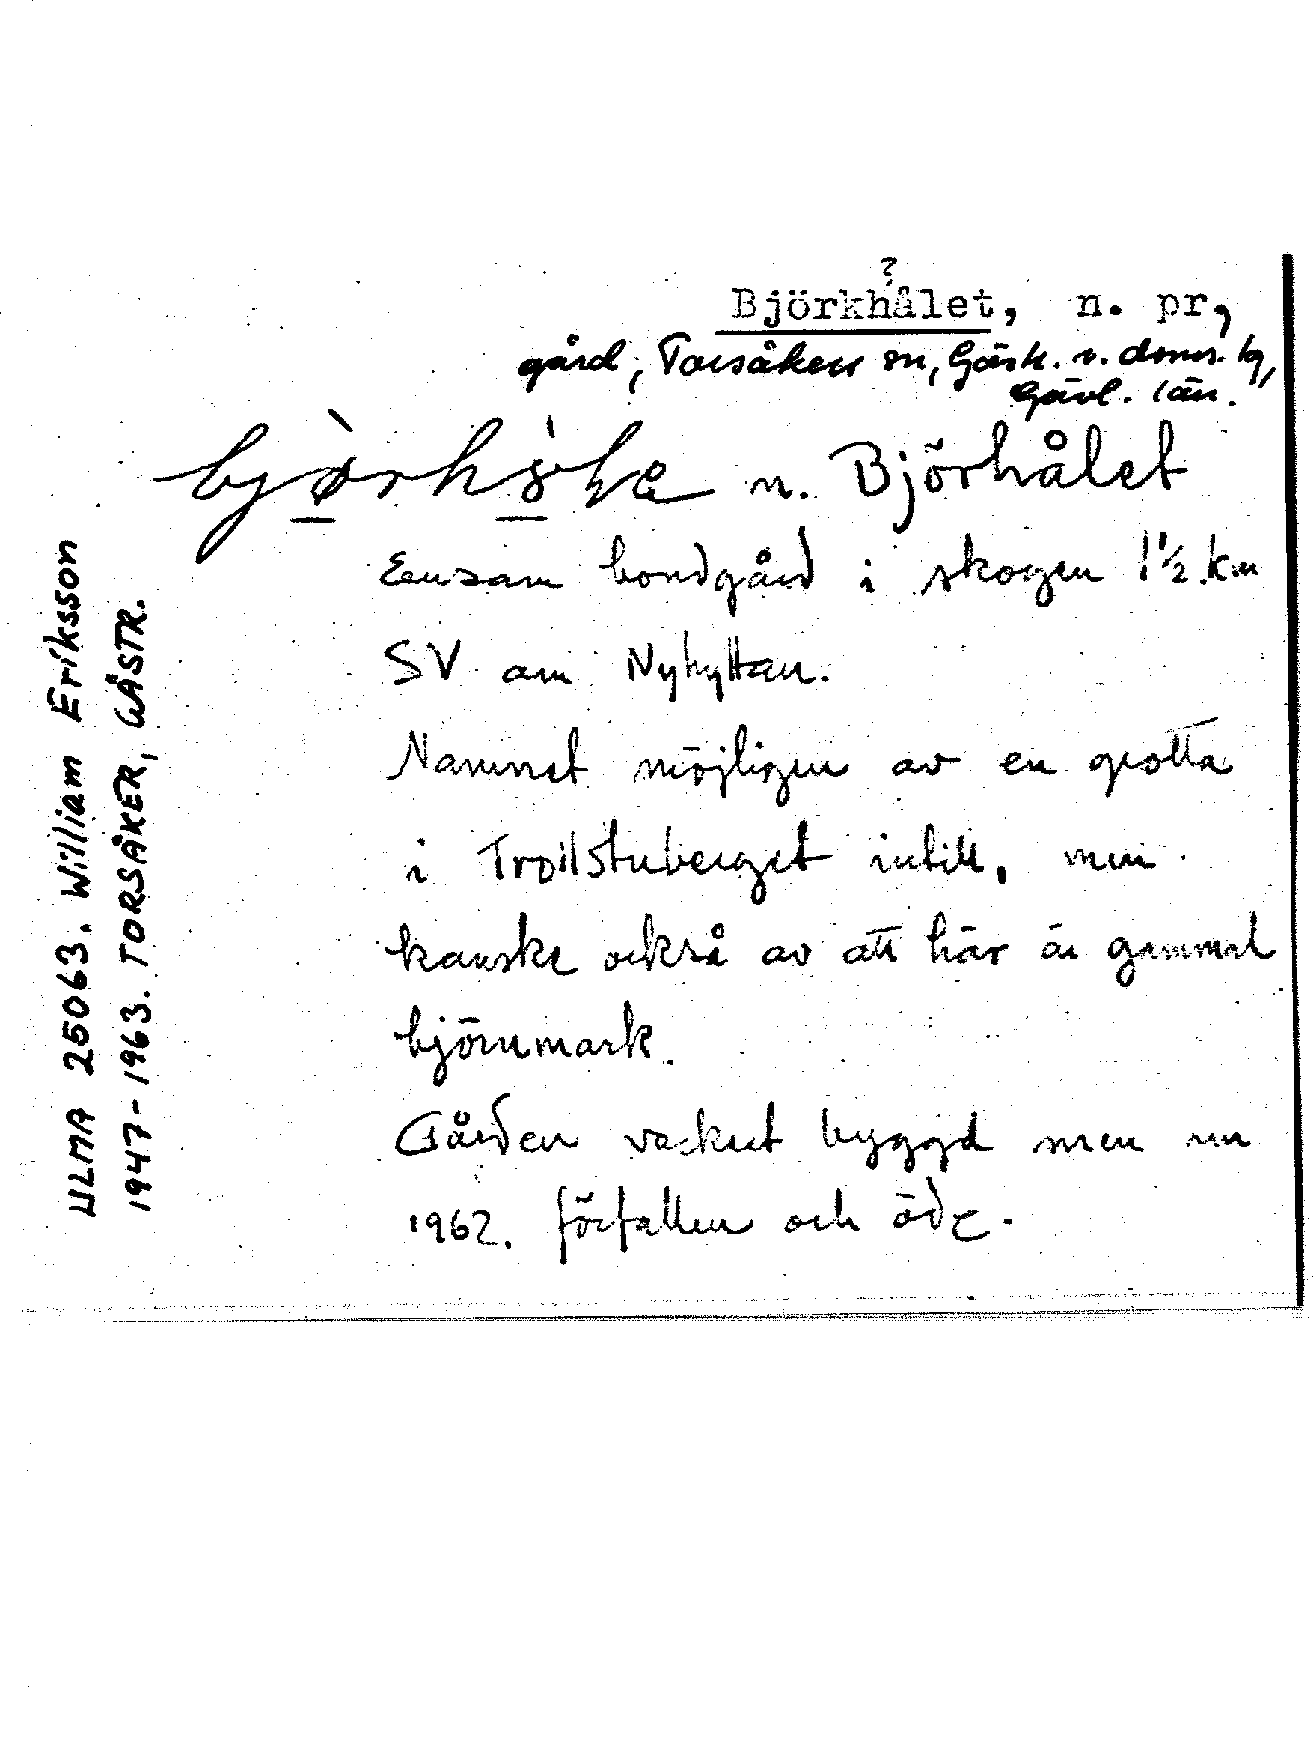 ?
Björkhålet, n. pr,
gård, Torsåkers sn, Gästr. v. doms. tg,
Gävl. län.
n. Björhålet
Ensam bondgård i skogen 1 1/2 km
SV om Nyhyttan.
Namnet möjligen av en grotta
i Trollstuberget intill, men
kanske också av att här är gammal
björnmark.
Gården vackert byggd men nu
1962. förfallen och öde.
ULMA 25063. William Eriksson
1947-1963. TORSÅKER, GÄSTR.